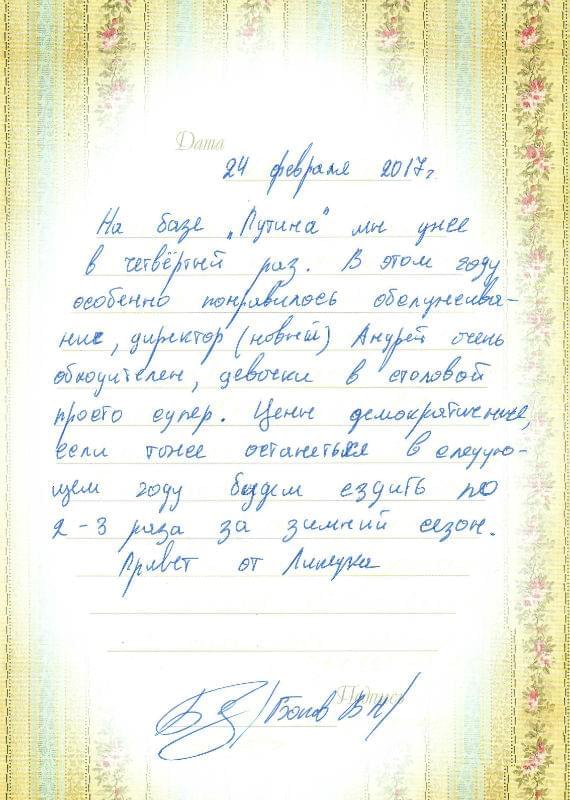 Дата
24 февраля 2017г.
На базе „Путина" мы уже
в четвёртый раз. В этом году
особенно понравилось обслужива-
ние, директор (новый) Андрей очень
обходителен, девочки в столовой
просто супер. Цены демократичные,
если тоже останеться в следую-
щем году будем ездить по
2-3 раза за зимний сезон.
Привет от
Подпись
В Н/